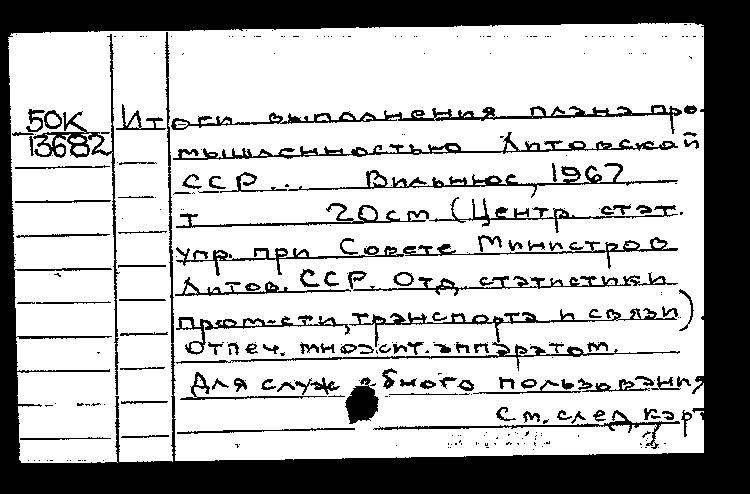 50К Итоги выполнения плана про-
13682 мышленностью Литовской
ССР... Вильнюс, 1967
т 20см. (Центр. стат.
упр. при Совете Министров
Литов. ССР. Отд. статистики
пром-сти, транспорта и связи).
Отпеч. множит. аппаратом.
Для служебного пользования
См. след. карт